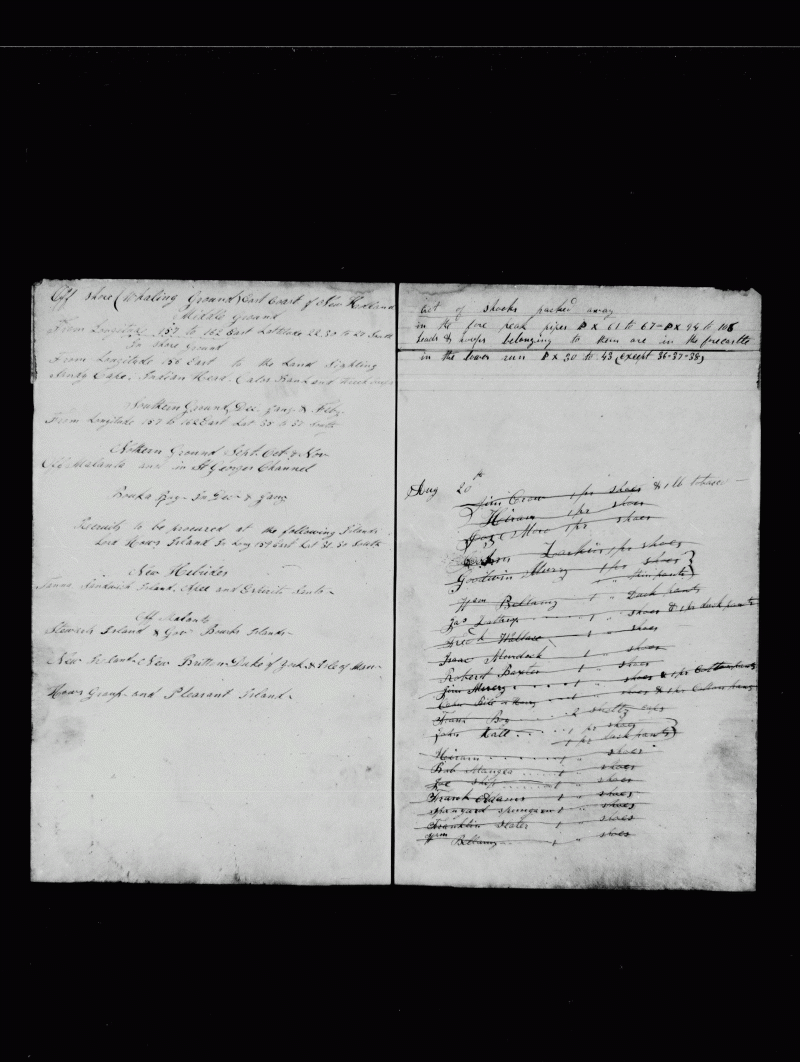 Off Shore (Whaling Ground) East Coast of New Holland
Middle Ground
From Longitude 157 to 162 East Lattitude 22.30 to 24 South
In Shore Ground
From Longitude 156 East to the Land Sighting
Sandy Cape, Indian Head, Catos Bank and
Southern Ground, Dec. Jany & Feby
From Longitude 157 to 162 East Lat 28 to 32 South
Nothern Ground Sept. Oct & Nov
Off Malanta and in St Georges Channel
Bouka Bay In Dec & Jany
Recruits to be procured at the following Islands
Lord Hows Island In Long 159 East Lat 31.30 South
New Hebrides
Tanna Sandwich Island and Espirito Santo
Off Malanta
Stewarts Island & Gov. Bouka Islands
New Ireland, New Britten Duke of York & Isle of Man
Hows Group and Pleasant Island
List of shooks packed away
in the fore peak pipes P X 61 to 67 - P X 94 to 106
heads & hoops belonging to them are in the forecastle
in the lower run P X 30 to 43 (except 36-37-38)
Aug 20th
Jim Crow 1 pr shoes & 1 lb tobacco
Hiram 1 pr shoes
1 pr shoes
Larkin 1 pr shoes
Goodwin Merry 1 pr shoes
1 " pants
Bellamy 1 " Duck pants
Jas 1 " shoes & 1 pr duck pants
Fred Wallace 1 " shoes
Isaac Murdock 1 " shoes
Robert Baxter 1 " shoes
Jim Merry 1 " shoes & 1 pr Cotton pants
1 " shoes & 1 pr Cotton pants
Frank 2
John 1 pr shoes
1 pr duck pants
Hiram 1 " shoes
Bob 1 " shoes
Joe Ship 1 " shoes
Frank Adams 1 " shoes
1 " shoes
Franklin Slater 1 " shoes
Bellamy 1 " shoes